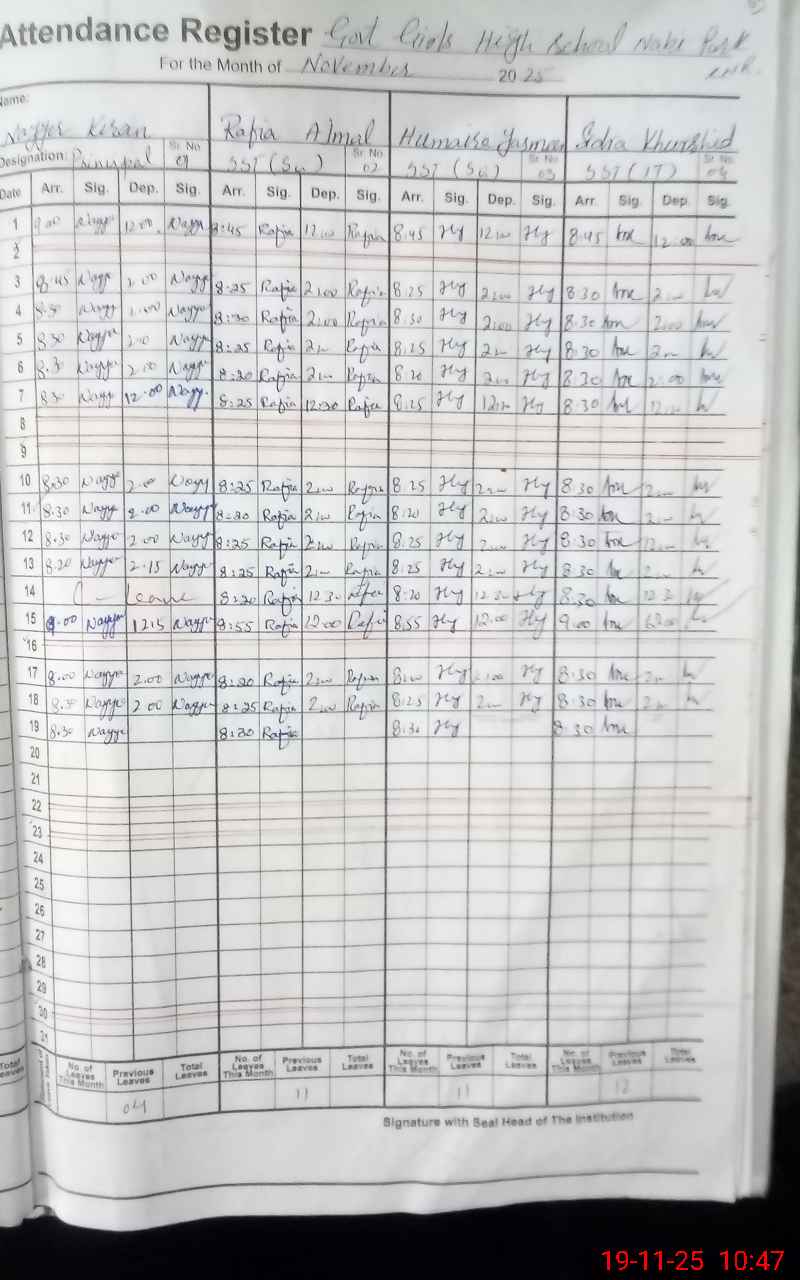 Attendance Register Govt Girls High School Nabi Park
For the Month of November 2025 LHR.
Name: Nayyer Kiran Rafia Ajmal Humaira Yasmeen Sidra Khurshid
Designation: Principal Sr. No 01 SST (Sc) Sr. No 02 SST (Sc) Sr. No 03 SST (IT) Sr. No 04
Date Arr. Sig. Dep. Sig. Arr. Sig. Dep. Sig. Arr. Sig. Dep. Sig. Arr. Sig. Dep. Sig.
1 9.00 Nayye 12.00 Nayye 8:45 Rafia 12.00 Rafia 8.45 Hy 12.00 Hy 8.45 12.00
2
3 8.45 Nayye 2.00 Nayye 8:25 Rafia 2.00 Rafia 8.25 Hy 2.00 Hy 8.30 2.00
4 8.30 Nayye Nayye 8:20 Rafia 2.00 Rafia 8.30 Hy 2.00 Hy 8.30 2.00
5 8.30 Nayye 2.0 Nayye 8:25 Rafia 2.00 Rafia 8.25 Hy 2.00 Hy 8.30 2.00
6 8.30 Nayye 2.00 Nayye 8:20 Rafia 2.00 Rafia 8.20 Hy 2.00 Hy 8.30 2.00
7 8.30 Nayye 12.00 Nayye 8:25 Rafia 12.30 Rafia 8.25 Hy Hy 8.30
8
9
10 8.30 Nayye 2.00 Nayye 8:25 Rafia 2.00 Rafia 8.25 Hy 2.00 Hy 8.30 2.00
11 8.30 Nayye 2.00 Nayye 8:20 Rafia 2.00 Rafia 8.20 Hy 2.00 Hy 8.30 2.00
12 8.30 Nayye 2.00 Nayye 8:25 Rafia 2.00 Rafia 8.25 Hy 2.00 Hy 8.30
13 8.20 Nayye 2.15 Nayye 8:25 Rafia 2.00 Rafia 8.25 Hy 2.00 Hy 8.30 2.00
14 C - Leave 8:20 Rafia 12.30 Rafia 8.20 Hy 12.30 Hy 8.30 12.30
15 9.00 Nayye 12.15 Nayye 8:55 Rafia 12.00 Rafia 8.55 Hy 12.00 Hy 9.00
16
17 8.00 Nayye 2.00 Nayye 8:20 Rafia 2.00 Rafia Hy Hy 8.30 2.00
18 8.30 Nayye 2.00 Nayye 8:25 Rafia 2.00 Rafia 8.25 Hy 2.00 Hy 8.30 2.00
19 8.30 Nayye 8:20 Rafia 8.30 Hy 8.30
20
21
22
23
24
25
26
27
28
29
30
31
Total Leaves No. of Leaves This Month Previous Leaves Total Leaves No. of Leaves This Month Previous Leaves Total Leaves No. of Leaves This Month Previous Leaves Total Leaves No. of Leaves This Month Previous Leaves Total Leaves
04 11 11 12
Signature with Seal Head of The Institution
19-11-25 10:47